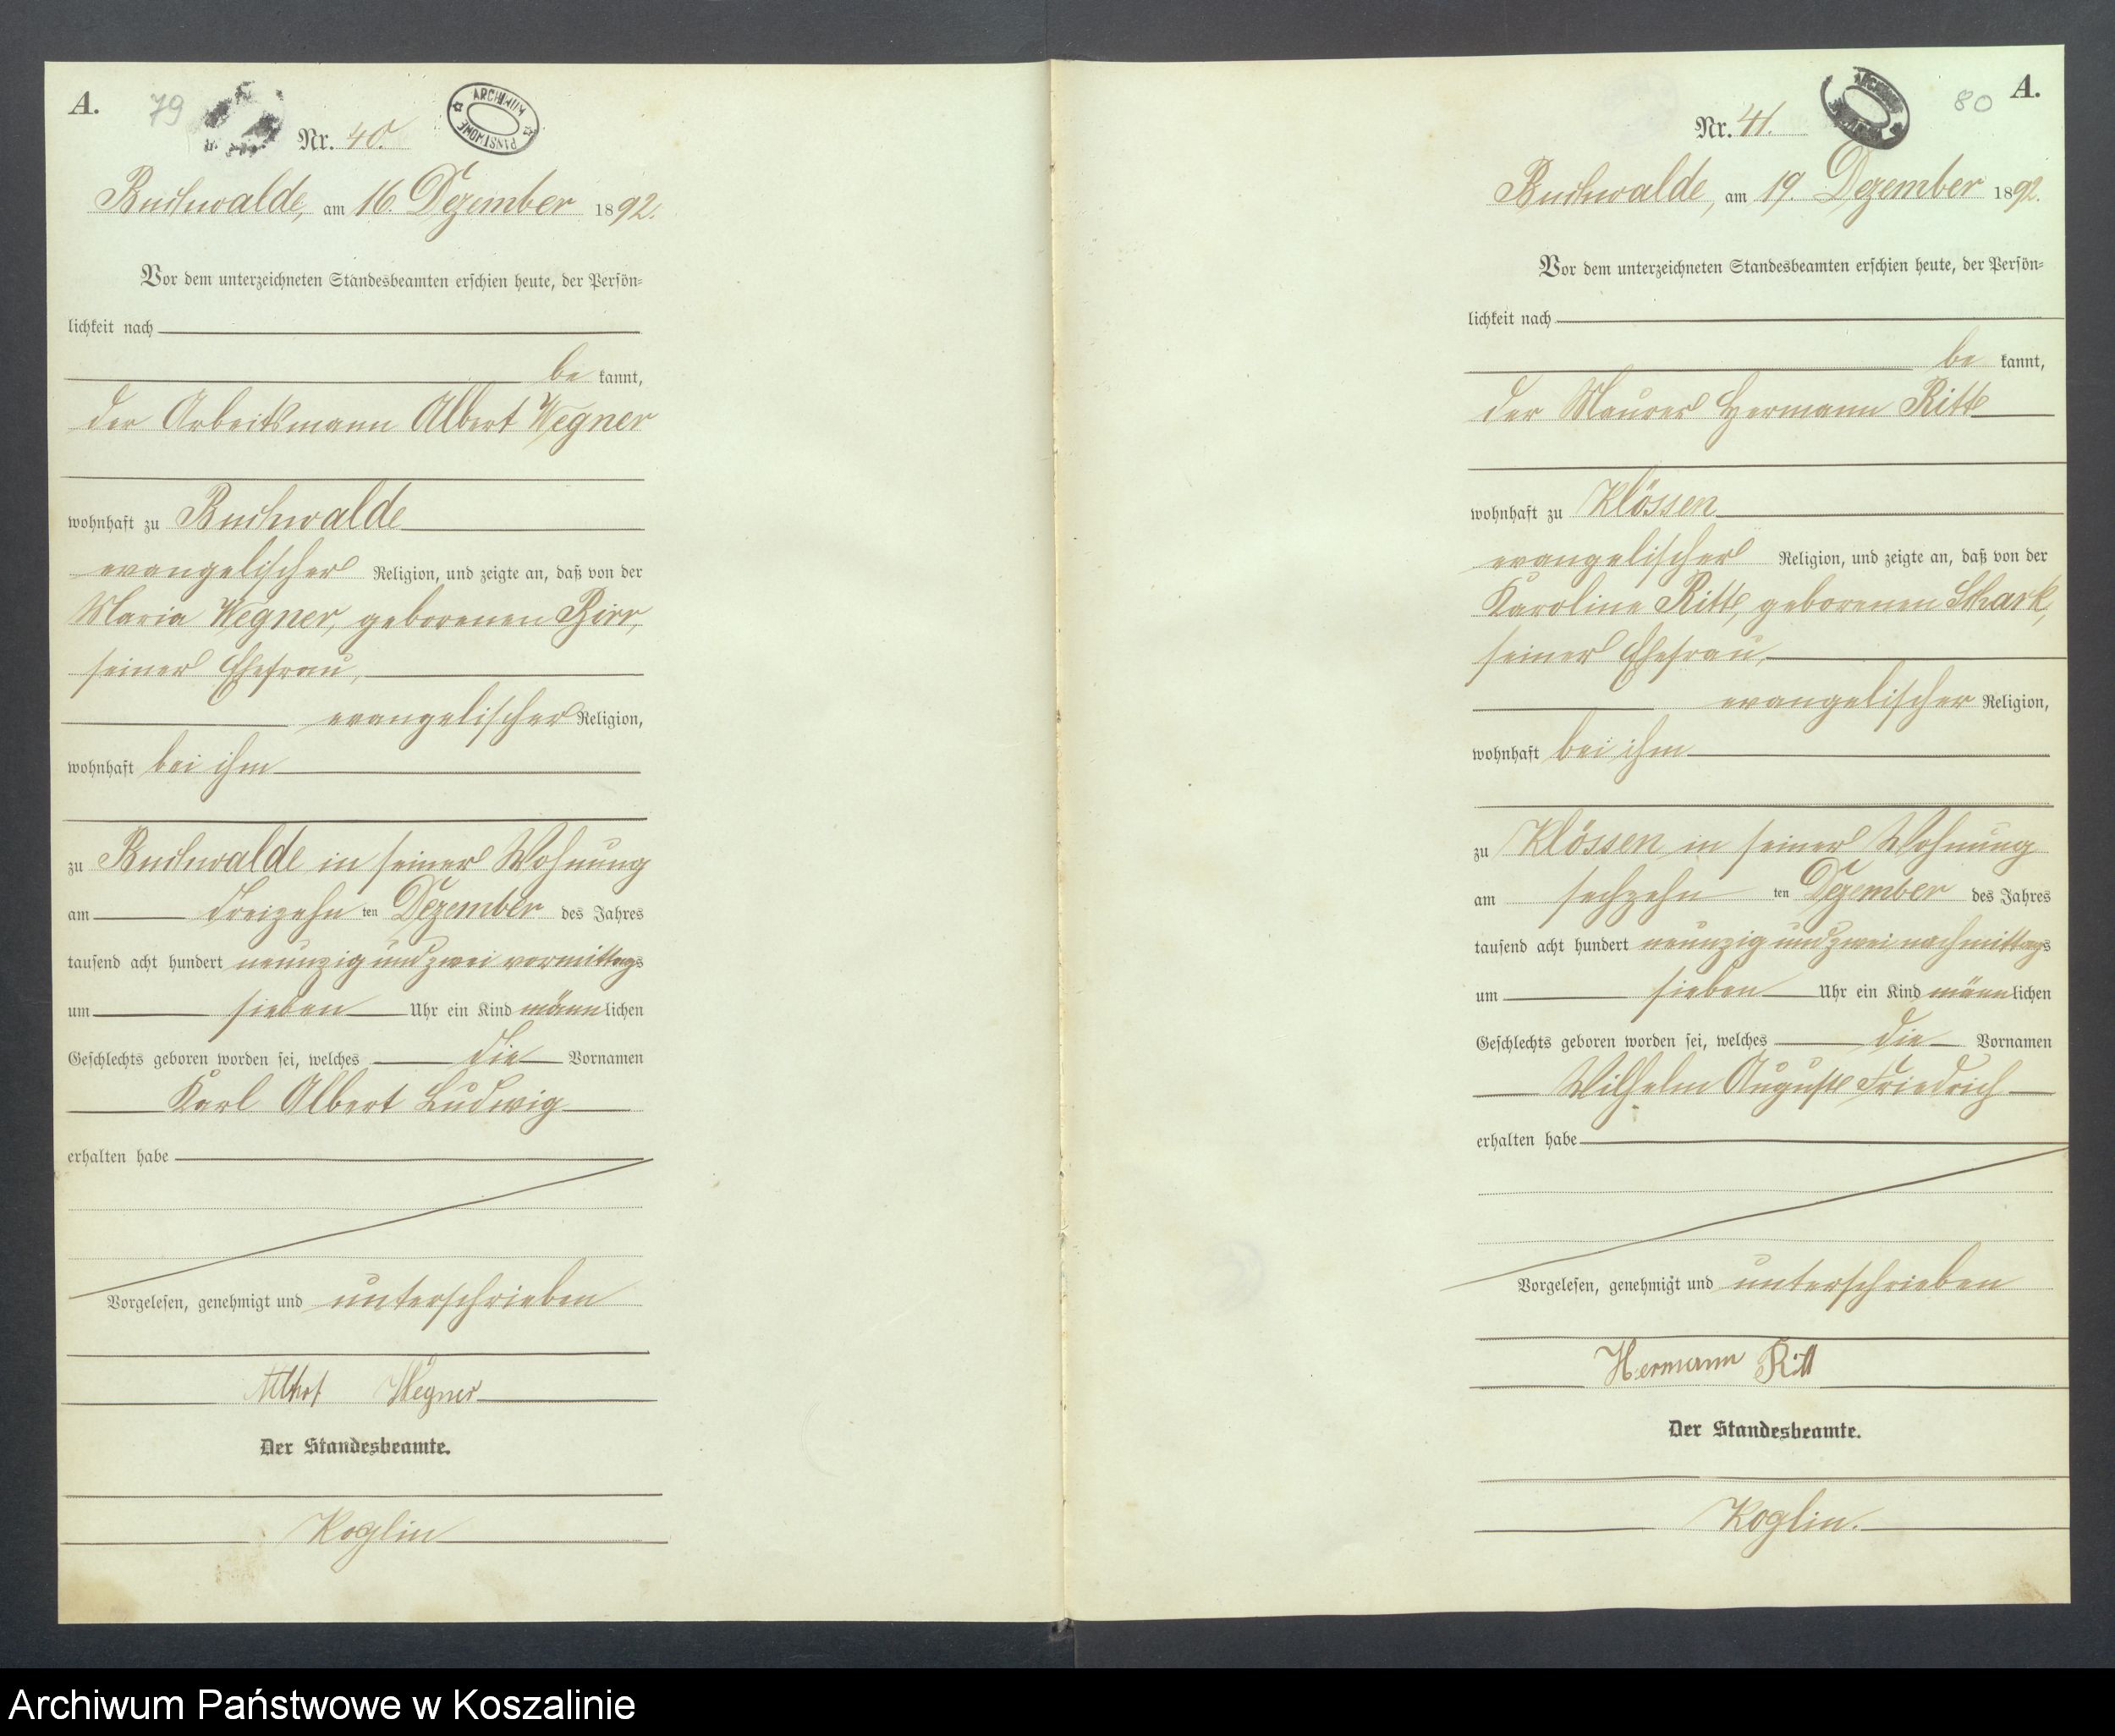 A.
79
ARCHIWUM PAŃSTWOWE
Nr. 40.
Buchwalde, am 16. Dezember 1892.
Vor dem unterzeichneten Standesbeamten erschien heute, der Persön-
lichkeit nach
be kannt,
der Arbeitsmann Albert Wegner
wohnhaft zu Buchwalde
evangelischer Religion, und zeigte an, daß von der
Maria Wegner, geborenen Birr,
seiner Ehefrau,
evangelischer Religion,
wohnhaft bei ihm
zu Buchwalde in seiner Wohnung
am dreizehn ten Dezember des Jahres
tausend acht hundert neunzig und zwei vormittags
um sieben Uhr ein Kind männlichen
Geschlechts geboren worden sei, welches die Vornamen
Karl Albert Ludwig
erhalten habe
Vorgelesen, genehmigt und unterschrieben
Albert Wegner
Der Standesbeamte.
Koglin
A.
80
Nr. 41.
Buchwalde, am 19. Dezember 1892.
Vor dem unterzeichneten Standesbeamten erschien heute, der Persön-
lichkeit nach
be kannt,
der Maurer Hermann Ritt
wohnhaft zu Klössen
evangelischer Religion, und zeigte an, daß von der
Karoline Ritt, geborenen
seiner Ehefrau,
evangelischer Religion,
wohnhaft bei ihm
zu Klössen in seiner Wohnung
am sechzehn ten Dezember des Jahres
tausend acht hundert neunzig und zwei nachmittags
um sieben Uhr ein Kind männlichen
Geschlechts geboren worden sei, welches die Vornamen
Wilhelm August Friedrich
erhalten habe
Vorgelesen, genehmigt und unterschrieben
Hermann Ritt
Der Standesbeamte.
Koglin.
Archiwum Państwowe w Koszalinie